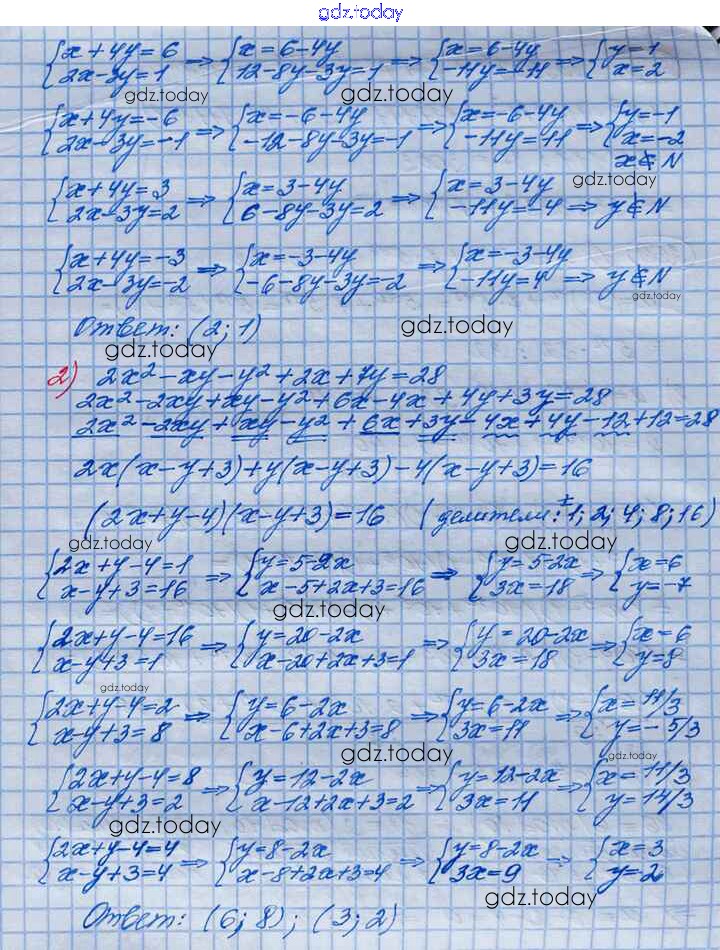 gdz.today
{x+4y=6 2x-3y=1 => {x=6-4y 12-8y-3y=1 => {x=6-4y -11y=-11 => {y=1 x=2
gdz.today gdz.today
{x+4y=-6 2x-3y=-1 => {x=-6-4y -12-8y-3y=-1 => {x=-6-4y -11y=11 => {y=-1 x=-2 x∉N
gdz.today
{x+4y=3 2x-3y=2 => {x=3-4y 6-8y-3y=2 => {x=3-4y -11y=-4 => y∉N
{x+4y=-3 2x-3y=-2 => {x=-3-4y -6-8y-3y=-2 => {x=-3-4y -11y=4 => y∉N
gdz.today
Ответ: (2; 1)
gdz.today
gdz.today
2) 2x²-xy-y²+2x+7y=28
2x²-2xy+xy-y²+6x-4x+4y+3y=28
gdz.today
2x²-2xy+xy-y²+6x+3y-4x+4y-12+12=28
2x(x-y+3)+y(x-y+3)-4(x-y+3)=16
(2x+y-4)(x-y+3)=16 (делители: ±1; 2; 4; 8; 16)
gdz.today gdz.today
{2x+y-4=1 x-y+3=16 => {y=5-2x x-5+2x+3=16 => {y=5-2x 3x=18 => {x=6 y=-7
gdz.today
{2x+y-4=16 x-y+3=1 => {y=20-2x x-20+2x+3=1 => {y=20-2x 3x=18 => {x=6 y=8
gdz.today
{2x+y-4=2 x-y+3=8 => {y=6-2x x-6+2x+3=8 => {y=6-2x 3x=11 => {x=11/3 y=-5/3
gdz.today gdz.today
{2x+y-4=8 x-y+3=2 => {y=12-2x x-12+2x+3=2 => {y=12-2x 3x=11 => {x=11/3 y=14/3
gdz.today
{2x+y-4=4 x-y+3=4 => {y=8-2x x-8+2x+3=4 => {y=8-2x 3x=9 => {x=3 y=2
gdz.today
Ответ: (6; 8); (3; 2)